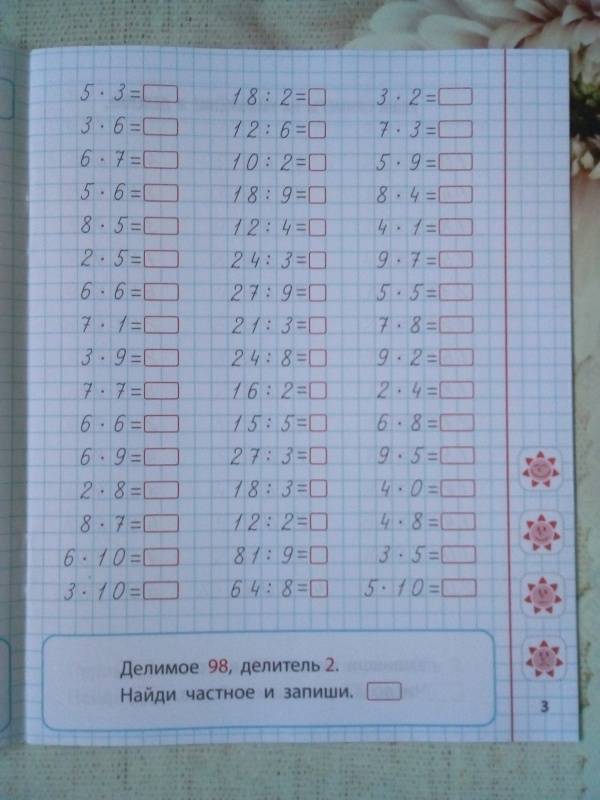 5 · 3 =
3 · 6 =
6 · 7 =
5 · 6 =
8 · 5 =
2 · 5 =
6 · 6 =
7 · 1 =
3 · 9 =
7 · 7 =
6 · 6 =
6 · 9 =
2 · 8 =
8 · 7 =
6 · 10 =
3 · 10 =
18 : 2 =
12 : 6 =
10 : 2 =
18 : 9 =
12 : 4 =
24 : 3 =
27 : 9 =
21 : 3 =
24 : 8 =
16 : 2 =
15 : 5 =
27 : 3 =
18 : 3 =
12 : 2 =
81 : 9 =
64 : 8 =
3 · 2 =
7 · 3 =
5 · 9 =
8 · 4 =
4 · 1 =
9 · 7 =
5 · 5 =
7 · 8 =
9 · 2 =
2 · 4 =
6 · 8 =
9 · 5 =
4 · 0 =
4 · 8 =
3 · 5 =
5 · 10 =
Делимое 98, делитель 2.
Найди частное и запиши.
3